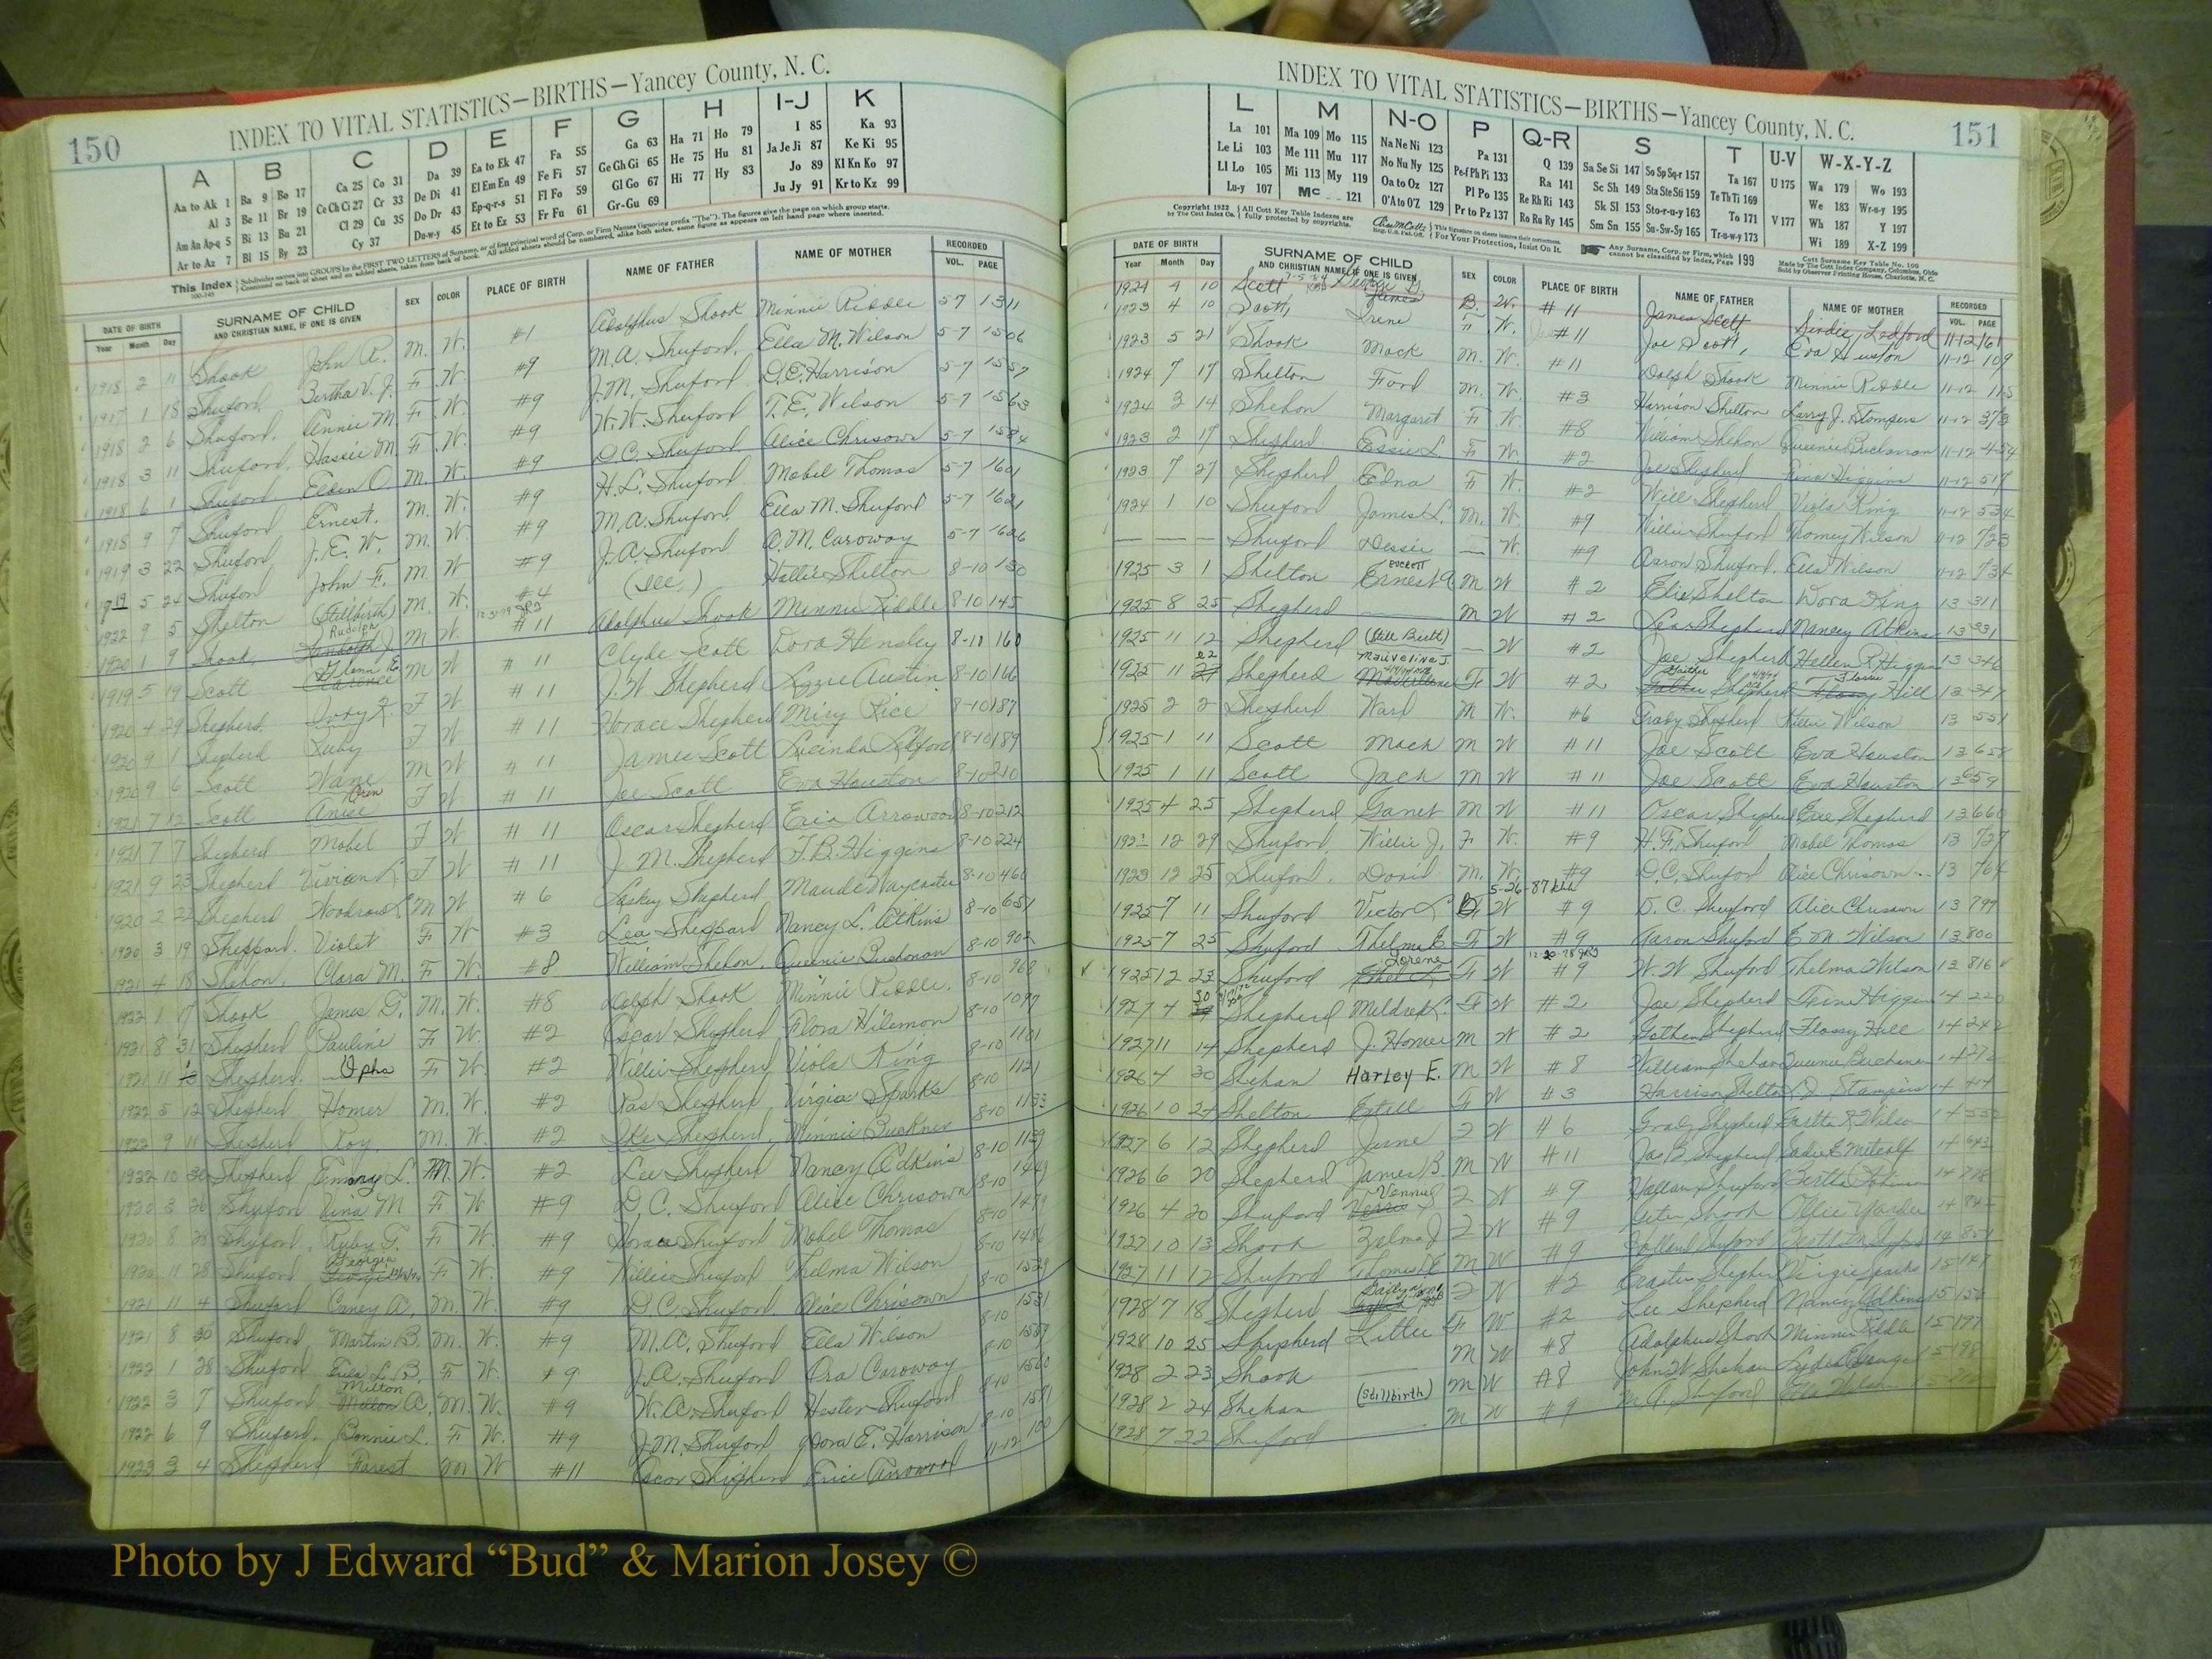 150
INDEX TO VITAL STATISTICS—BIRTHS—Yancey County, N. C.
A B C D E F G H I-J K
Aa to Ak 1 Ba 9 Bo 17 Ca 25 Co 31 Da 39 Ea to Ek 47 Fa 55 Ga 63 Ha 71 Ho 79 I 85 Ka 93
Al 3 Be 11 Br 19 Ce Ch Ci 27 Cr 33 De Di 41 El Em En 49 Fe Fi 57 Ge Gh Gi 65 He 75 Hu 81 Ja Je Ji 87 Ke Ki 95
Am An Ap-q 5 Bi 13 Bu 21 Cl 29 Cu 35 Do Dr 43 Ep-q-r-s 51 Fl Fo 59 Gl Go 67 Hi 77 Hy 83 Jo 89 Kl Kn Ko 97
Ar to Az 7 Bl 15 By 23 Cy 37 Du-w-y 45 Et to Ez 53 Fr Fu 61 Gr-Gu 69 Ju Jy 91 Kr to Kz 99
This Index
DATE OF BIRTH SURNAME OF CHILD SEX COLOR PLACE OF BIRTH NAME OF FATHER NAME OF MOTHER RECORDED
Year Month Day AND CHRISTIAN NAME, IF ONE IS GIVEN VOL. PAGE
1918 2 11 Shook John R. M. W. #1 Adolphus Shook Minnie Riddle 5-7 1311
1917 1 18 Shuford Bertha V. J. F. W. #9 M.A. Shuford Ella M. Wilson 5-7 1506
1918 2 6 Shuford Annie M. F. W. #9 J.M. Shuford D.E. Harrison 5-7 1557
1918 3 11 Shuford Hassie M. F. W. #9 W.W. Shuford T.E. Wilson 5-7 1563
1918 6 1 Shuford Elden O. M. W. #9 D.C. Shuford Alice Chrisown 5-7 1584
1918 9 7 Shuford Ernest M. W. #9 H.L. Shuford Mabel Thomas 5-7 1601
1919 3 22 Shuford J. E. W. M. W #9 M.A. Shuford Ella M. Shuford 5-7 1621
1919 5 24 Shufon John F. M W #9 J.A. Shuford A.M. Caroway 5-7 1626
1922 9 5 Shelton (Stillbirth) M. W. #4 Hallie Shelton 8-10 130
1920 1 9 Shook Rudolph J M W. #11 Adolphus Shook Minnie Riddle 8-10 145
1919 5 19 Scott Glenn E M W #11 Clyde Scott Dora Hensley 8-10 160
1920 4 29 Shepherd F W #11 J. W Shepherd Lizzie Austin 8-10 166
1920 9 1 Shepherd Ruby F W #11 Horace Shepherd Mincy Rice 8-10 187
1920 9 6 Scott Wane M W #11 James Scott Lucinda Ledford 8-10 189
1921 7 12 Scott Anise F W #11 Joe Scott Eva Houston 8-10 210
1921 7 7 Shepherd Mabel F W #11 Oscar Shepherd Erie Arrowood 8-10 212
1921 9 23 Shepherd Vivian L F W #11 J. M. Shepherd F. B. Higgins 8-10 224
1920 2 22 Shepherd Woodrow L M W #6 Laskey Shepherd Maude Waycaster 8-10 460
1920 3 19 Sheppard Violet F W #3 Lea Sheppard Nancy L. Atkins 8-10 651
1921 4 18 Shehon Clara M. F. W. #8 William Shehon Queenie Buchanan 8-10 902
1922 1 7 Shook James D. M. W. #8 Dolph Shook Minnie Riddle 8-10 968
1921 8 31 Shepherd Pauline F W. #2 Oscar Shepherd Flora Hilemon 8-10 1097
1921 11 Shepherd Opha F W. #2 Willie Shepherd Viola King 8-10 1101
1922 5 12 Shepherd Homer M. W. #2 Ras Shepherd Virgia Sparks 8-10 1121
1922 9 11 Shepherd Roy M. W. #2 Ike Shepherd Minnie Buckner 8-10 1133
1922 10 30 Shepherd Emory L. M. W. #2 Lee Shepherd Nancy Adkins 8-10 1139
1920 3 26 Shuford Vina M F W #9 D. C. Shuford Alice Chrisown 8-10
1920 8 28 Shuford Ruby G. F. W. #9 Horace Shuford Mabel Thomas 8-10
1920 11 28 Shuford Georgia F. W. #9 Willie Shuford Thelma Wilson 8-10
1921 11 4 Shuford Caney A. M. W. #9 D.C. Shuford Alice Chrisown 8-10 1531
1921 8 30 Shuford Martin B. M. W. #9 M.A. Shuford Ella Wilson 8-10
1922 1 28 Shuford B. F W. #9 J.A. Shuford Ora Caroway 8-10 1560
1922 3 7 Shuford Milton A. M. W. #9 W.A. Shuford Hester Shuford 8-10 1581
1922 6 9 Shuford Bonnie L. F W. #9 J.M. Shuford Dora E. Harrison
1923 3 4 Shepherd Forest M W #11 Oscar Shepherd Erice Arrowood 11-12 100
151
INDEX TO VITAL STATISTICS—BIRTHS—Yancey County, N. C.
L M N-O P Q-R S T U-V W-X-Y-Z
La 101 Ma 109 Mo 115 Na Ne Ni 123 Pa 131 Q 139 Sa Se Si 147 So Sp Sq-r 157 Ta 167 U 175 Wa 179 Wo 193
Le Li 103 Me 111 Mu 117 No Nu Ny 125 Pe-f Ph Pi 133 Ra 141 Sc Sh 149 Sta Ste Sti 159 Te Th Ti 169 We 183 Wr-u-y 195
Ll Lo 105 Mi 113 My 119 Oa to Oz 127 Pl Po 135 Re Rh Ri 143 Sk Sl 153 Sto-r-u-y 163 To 171 V 177 Wh 187 Y 197
Lu-y 107 Mc 121 O'A to O'Z 129 Pr to Pz 137 Ro Ru Ry 145 Sm Sn 155 Su-Sw-Sy 165 Tr-u-w-y 173 Wi 189 X-Z 199
Copyright 1922 by The Cott Index Co. All Cott Key Table Indexes are fully protected by copyrights. For Your Protection, Insist On It. Any Surname, Corp. or Firm, which cannot be classified by Index, Page 199
Cott Surname Key Table No. 100 Made by The Cott Index Company, Columbus, Ohio Sold by Observer Printing House, Charlotte, N. C.
DATE OF BIRTH SURNAME OF CHILD SEX COLOR PLACE OF BIRTH NAME OF FATHER NAME OF MOTHER RECORDED
Year Month Day AND CHRISTIAN NAME, IF ONE IS GIVEN VOL. PAGE
1924 4 10 Scott James B. W. #11 James Scott Birdie Ledford 11-12 161
1923 4 10 Scott, Irene F. W. #11 Joe Scott, Eva Huston 11-12 109
1923 5 21 Shook Mack M. W. #11 Dolph Shook Minnie Riddle 11-12 115
1924 7 17 Shelton Ford M. W. #3 Harrison Shelton Larry J. Stompers 11-12 373
1924 3 14 Shehon Margaret F. W. #8 William Shehon Queenie Buchanan 11-12 454
1923 2 17 Shepherd Essie L F W #2 Joe Shepherd Higgins 11-12 517
1923 7 27 Shepherd Edna F W. #2 Will Shepherd Viola King 11-12 534
1924 1 10 Shuford James L. M. W. #9 Willie Shuford Thomey Wilson 11-12 723
— — — Shuford Dessie — W. #9 Aaron Shuford Ella Wilson 11-12 734
1925 3 1 Shelton Ernest M W #2 Elie Shelton Dora King 13 311
1925 8 25 Shepherd — M W #2 Lear Shepherd Nancy Atkins 13 331
1925 11 12 Shepherd (Still Birth) — W #2 Joe Shepherd Hellen R. Higgin 13 346
1925 11 22 Shepherd Mauveline J. F W #2 Gaither Shepherd Hill 13 347
1925 2 2 Shepherd Ward M W. #6 Grady Shepherd Wilson 13 551
1925 1 11 Scott Mack M W #11 Joe Scott Eva Houston 13 658
1925 1 11 Scott Jack M W #11 Joe Scott Eva Houston 13 659
1925 4 25 Shepherd Ganet M W #11 Oscar Shepherd Eree Shepherd 13 660
12 29 Shuford Willie J. F. W. #9 H.F. Shuford Mabel Thomas 13 727
1923 12 25 Shuford David M. W. #9 D.C. Shuford Alice Chrisown 13 764
5-26-87
1925 7 11 Shuford Victor L B W #9 D. C. Shuford Alice Chrisawn 13 799
1925 7 25 Shuford Thelma E F W #9 Aaron Shuford E M Wilson 13 800
1925 12 23 Shuford Lorene F W #9 W. W Shuford Thelma Wilson 13 816
1927 4 30 Shepherd Mildred L. F W #2 Joe Shepherd Higgin 14 220
1927 11 14 Shepherd J. Homer M W #2 Gathen Shepherd Flossy Hill 14 242
1926 4 30 Shehan Harley E. M W #8 William Shehan Queenie Buchanan 14
1926 10 24 Shelton Estell F W #3 Harrison Shelton L. J. Stampers 14 414
1927 6 12 Shepherd June F W #6 Grady Shepherd Wilson 14 532
1926 6 20 Shepherd James B. M W #11 Jas B. Shepherd Sadie E Metcalf 14 643
1926 4 20 Shuford Vennus F W #9 Hallan Shuford Bertha 14 778
1927 10 13 Shook Zelma J F W #9 Peter Shook Ollie 14
1927 11 12 Shuford Thomas E M W #9 Holland Shuford 14 857
1928 7 18 Shepherd F W #2 Erastus Shepherd Virgie Sparks 15 147
1928 10 25 Shepherd Little F W #2 Lee Shepherd Nancy Adkins 15 156
1928 2 23 Shook M W #8 Adolphus Shook Minnie Riddle 15 197
1928 2 24 Shehan (Stillbirth) M W #8 John W Shehan 15 198
1928 7 22 Shuford M W #9 M A Shuford Ella Wilson
Photo by J Edward “Bud” & Marion Josey ©